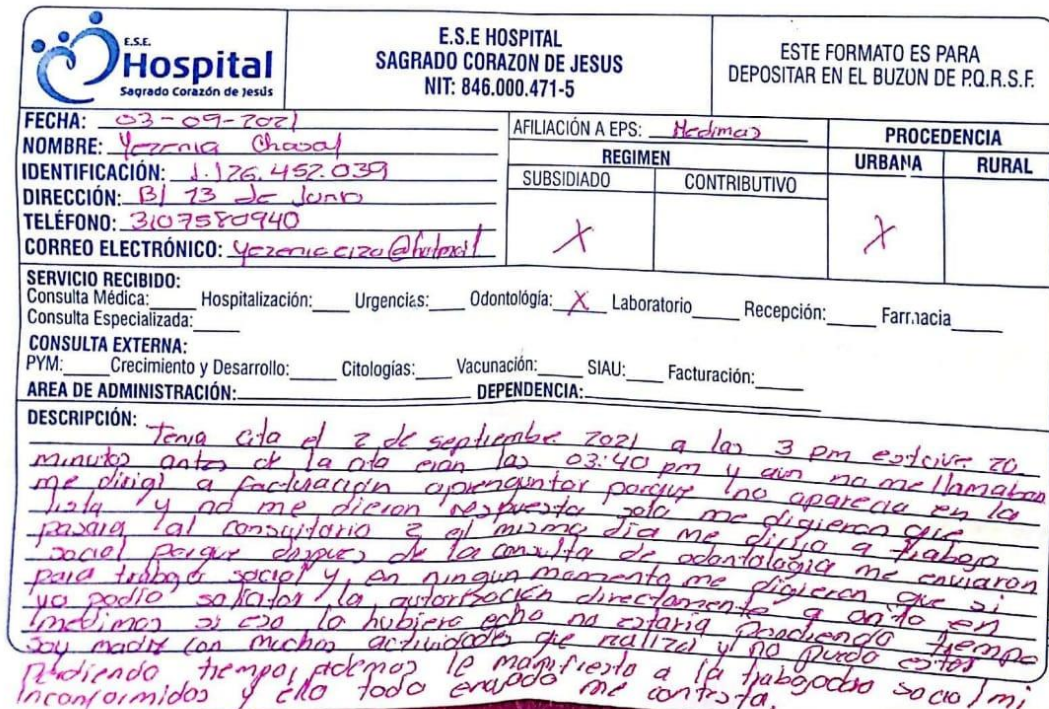 E.S.E.
Hospital
Sagrado Corazón de Jesús
E.S.E HOSPITAL
SAGRADO CORAZON DE JESUS
NIT: 846.000.471-5
ESTE FORMATO ES PARA
DEPOSITAR EN EL BUZON DE P.Q.R.S.F.
FECHA: 03-09-2021
NOMBRE: Yezenia
IDENTIFICACIÓN: 1.126.452.039
DIRECCIÓN: B/ 13 de Junio
TELÉFONO: 3107580940
CORREO ELECTRÓNICO:
AFILIACIÓN A EPS: Medimas
REGIMEN
SUBSIDIADO CONTRIBUTIVO
X
PROCEDENCIA
URBANA RURAL
X
SERVICIO RECIBIDO:
Consulta Médica: Hospitalización: Urgencias: Odontológía: X Laboratorio Recepción: Farmacia
Consulta Especializada:
CONSULTA EXTERNA:
PYM: Crecimiento y Desarrollo: Citologías: Vacunación: SIAU: Facturación:
AREA DE ADMINISTRACIÓN: DEPENDENCIA:
DESCRIPCIÓN:
Tenia cita el 2 de septiembre 2021 a las 3 pm estuve 20
minutos antes de la cita eran las 03:40 pm y aun no me llamaban
me dirigi a facturación apreguntar porque no aparecia en la
lista y no me dieron respuesta solo me digieron que
pasara al consultorio 2 el mismo dia me dirijo a trabajo
social porque despues de la consulta de odontologia me enviaron
para trabajo social y en ningun momento me digieron que si
yo podia solicitar la autorización directamente en
medimas si eso lo hubiera echo no estaria perdiendo tiempo
soy madre con muchas actividades que realizar y no puedo estar
perdiendo tiempo, ademas le manifiesto a la trabajadora social mi
inconformidad y ella toda enojada me contesta.